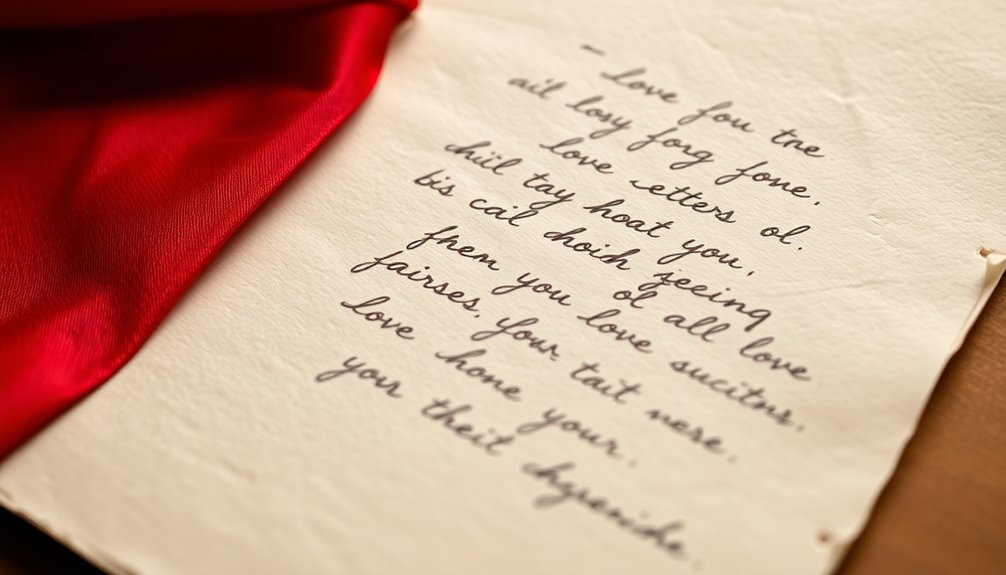 – Love fou tne
ail losy forg fone,
love etters ol.
chiil tay hoat you,
bis cail choich jeeing
fhem you ol all love
fairses. your love sucitns.
love hone your tait nere.
your theit